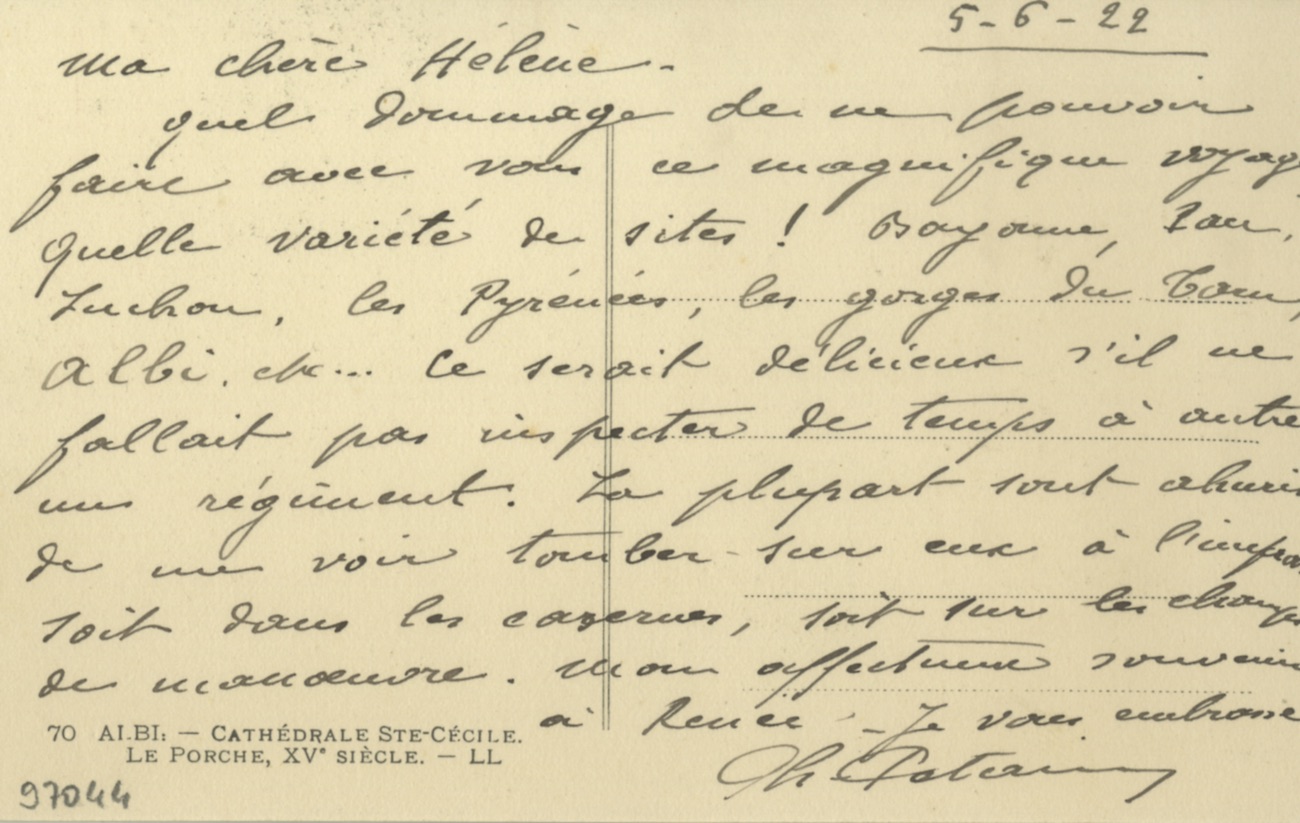 5-6-22
Ma chère Hélène.
quel dommage de ne pouvoir
faire avec vous ce magnifique voyag
quelle variété de sites ! Bayonne, Pau,
Luchon, les Pyrénées, les gorges du Tarn,
Albi, etc... Ce serait délicieux s'il ne
fallait pas inspecter de temps à autre
un régiment. La plupart sont ahuris
de me voir tomber sur eux à l'impro
soit dans les casernes, soit sur les champs
de manoeuvre. Mon affectueux souvenir
à Renée - Je vous embrasse
Ph Pétain
70 ALBI: — CATHÉDRALE STE-CÉCILE.
LE PORCHE, XVe SIÈCLE. — LL
97044